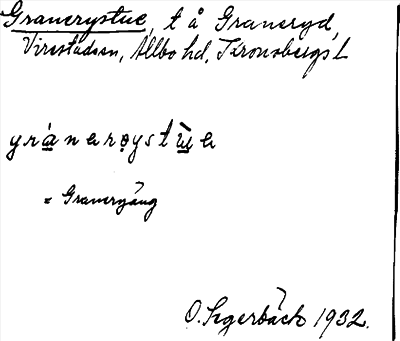 Granerystue, t å Graneryd,
Virestadssn, Allbo hd, Kronobergs L
gránerøystùe
= Granerygång
O. Segerbäck 1932.